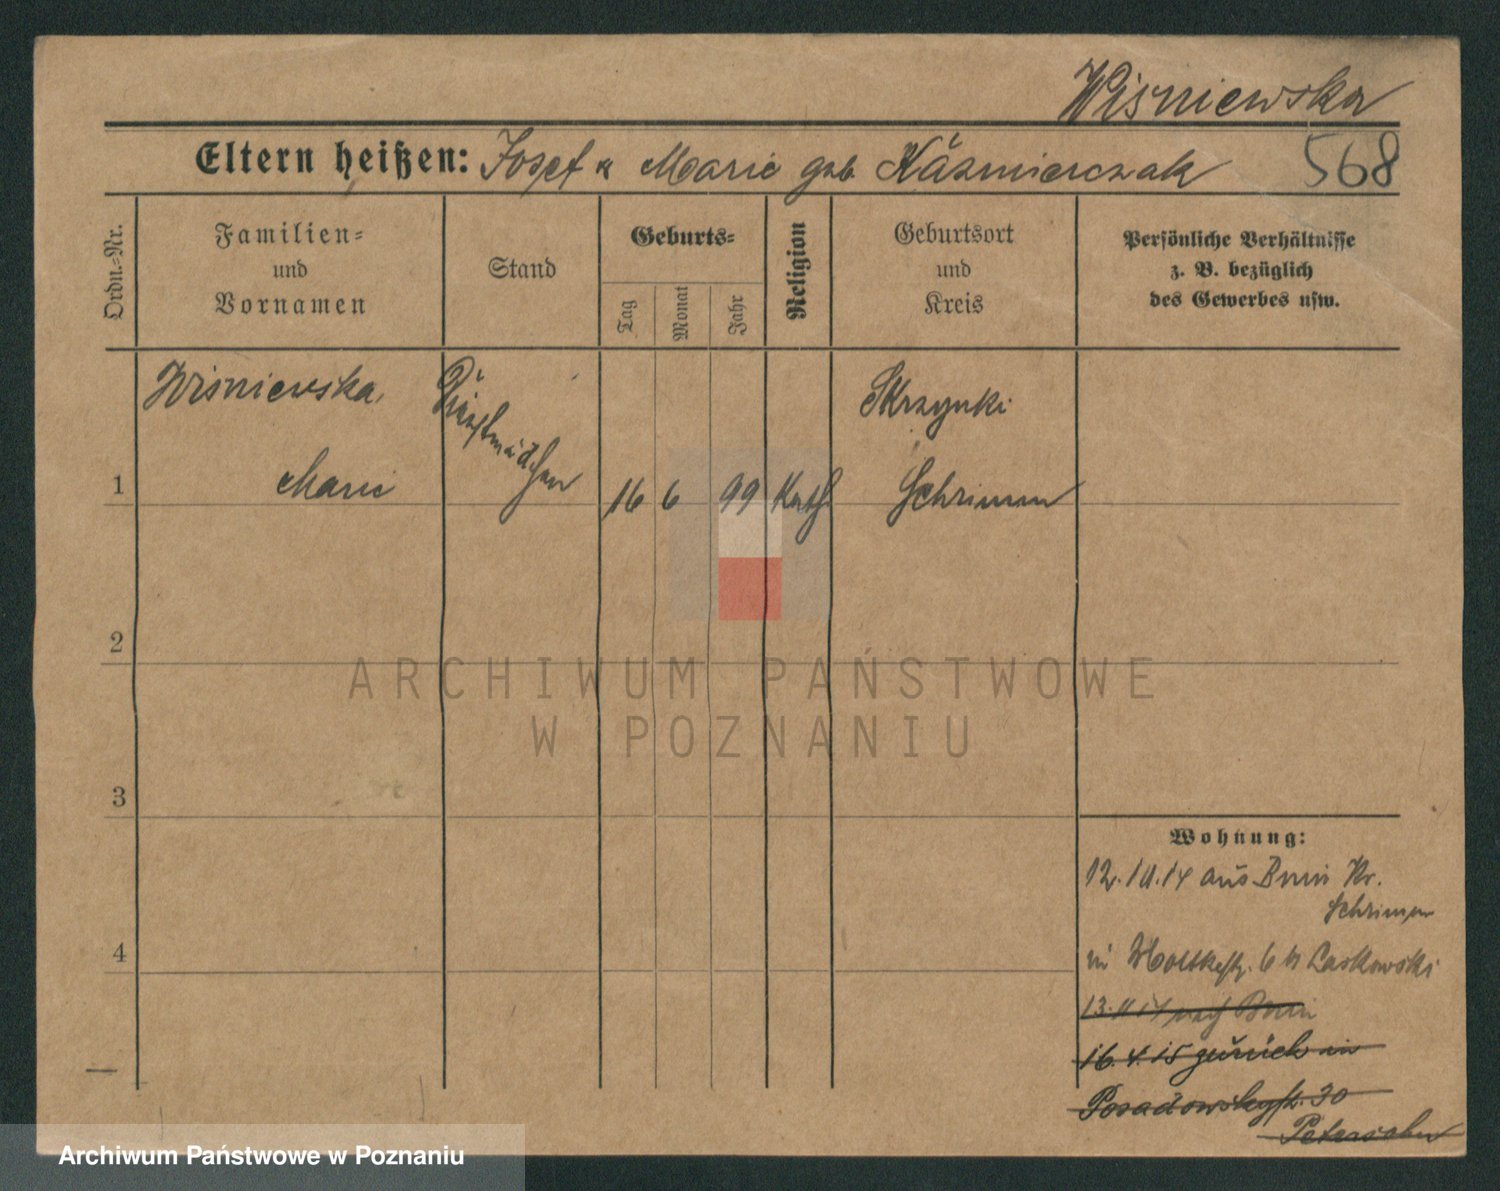 Wiśniewska
Eltern heißen: Josef u Marie geb Kaźmierczak 568
Ordn.-Nr.
Familien-
und
Vornamen
Stand
Geburts-
Tag
Monat
Jahr
Religion
Geburtsort
und
Kreis
Persönliche Verhältnisse
z. B. bezüglich
des Gewerbes usw.
Wiśniewska,
Dienstmädchen
Skrzynki
1 Marie 16 6 99 Kath Schrimm
2
3
4
Wohnung:
12.10.14 aus Bnin Kr.
Schrimm
in Moltkestr. 6 b Laskowski
13. 11 14 nach Bnin
16. 4. 15 zurück in
Posadowskystr. 30
ARCHIWUM PAŃSTWOWE
W POZNANIU
Archiwum Państwowe w Poznaniu